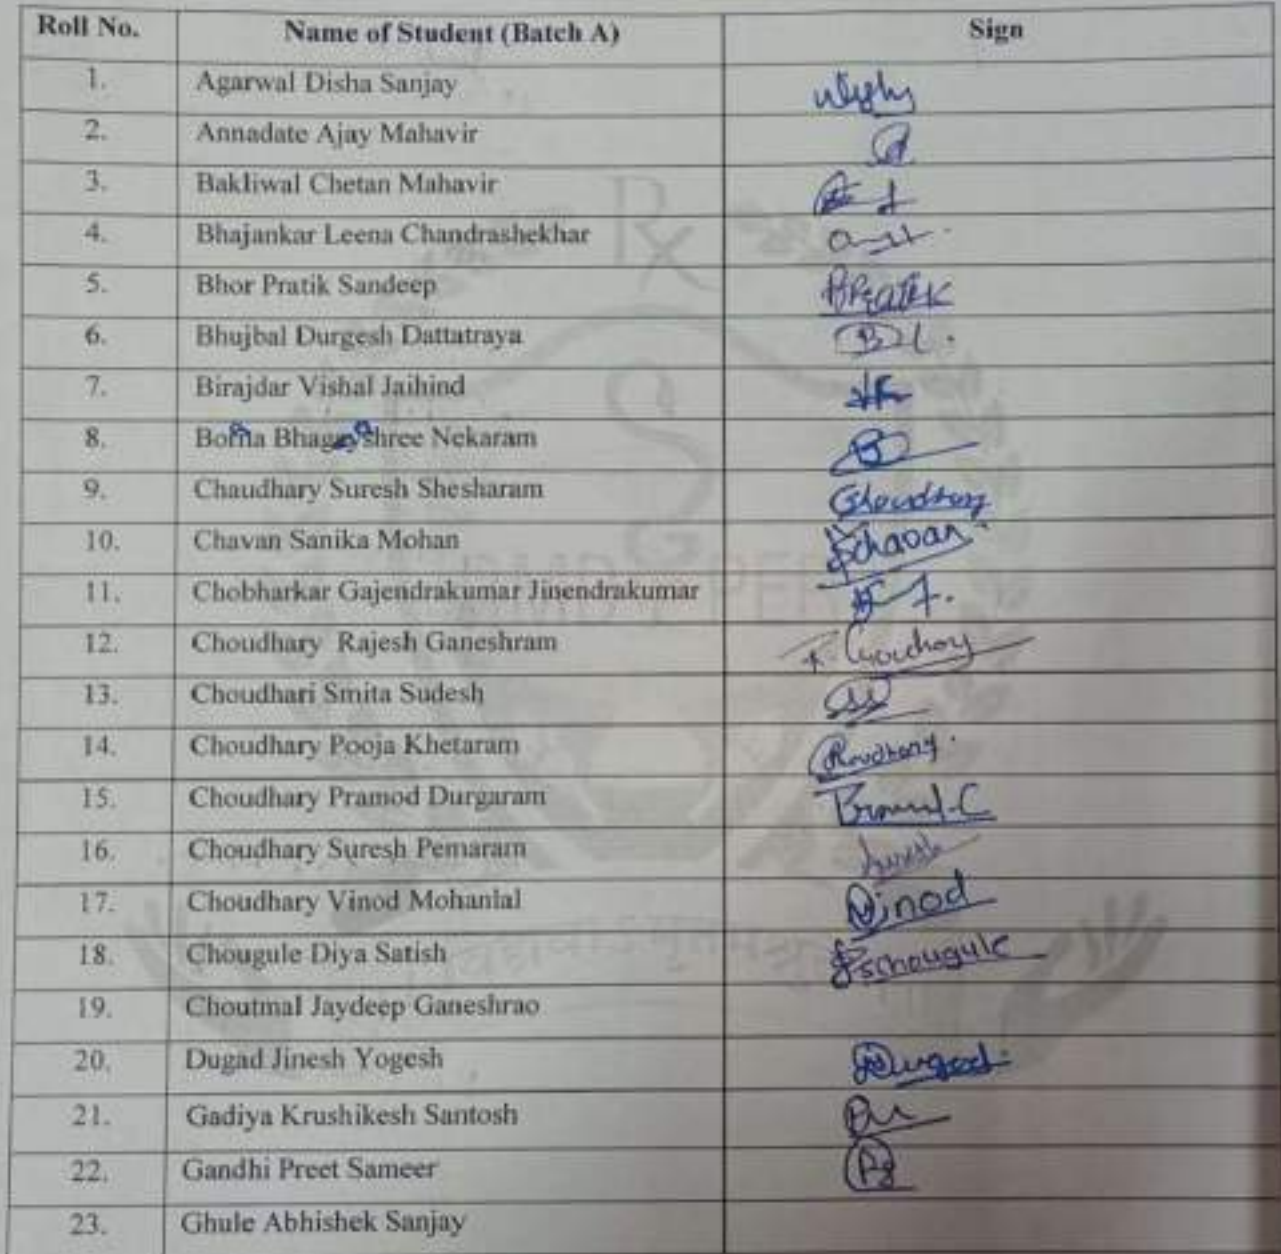 Roll No. Name of Student (Batch A) Sign
1. Agarwal Disha Sanjay
2. Annadate Ajay Mahavir
3. Bakliwal Chetan Mahavir
4. Bhajankar Leena Chandrashekhar
5. Bhor Pratik Sandeep PRATIK
6. Bhujbal Durgesh Dattatraya
7. Birajdar Vishal Jaihind
8. Borna Bhagyashree Nekaram B
9. Chaudhary Suresh Shesharam Choudhary
10. Chavan Sanika Mohan Schavan
11. Chobharkar Gajendrakumar Jinendrakumar
12. Choudhary Rajesh Ganeshram R. Choudhary
13. Choudhari Smita Sudesh
14. Choudhary Pooja Khetaram Choudhary
15. Choudhary Pramod Durgaram
16. Choudhary Suresh Pemaram Suresh
17. Choudhary Vinod Mohanlal Vinod
18. Chougule Diya Satish Schougule
19. Choutmal Jaydeep Ganeshrao
20. Dugad Jinesh Yogesh Dugad
21. Gadiya Krushikesh Santosh
22. Gandhi Preet Sameer Pg
23. Ghule Abhishek Sanjay